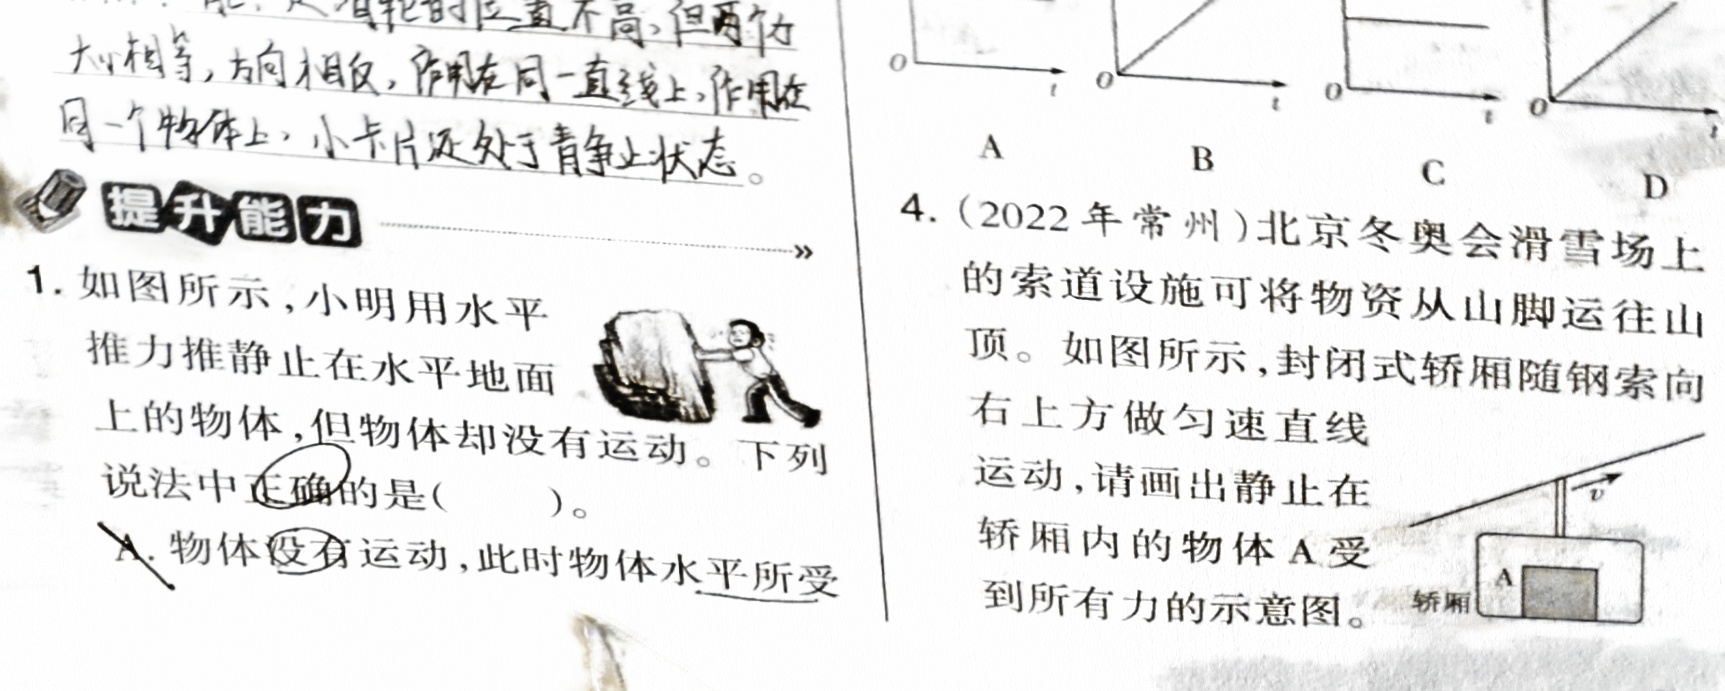 滑轮的位置不高,但两个力
大小相等,方向相反,作用在同一直线上,作用在
同一个物体上,小卡片还处于静止状态。
提升能力
1. 如图所示,小明用水平
推力推静止在水平地面
上的物体,但物体却没有运动。下列
说法中正确的是(    )。
A. 物体没有运动,此时物体水平所受
O t O t O t O t
A B C D
4. (2022年常州)北京冬奥会滑雪场上
的索道设施可将物资从山脚运往山
顶。如图所示,封闭式轿厢随钢索向
右上方做匀速直线
运动,请画出静止在
轿厢内的物体A受
到所有力的示意图。
v
A
轿厢